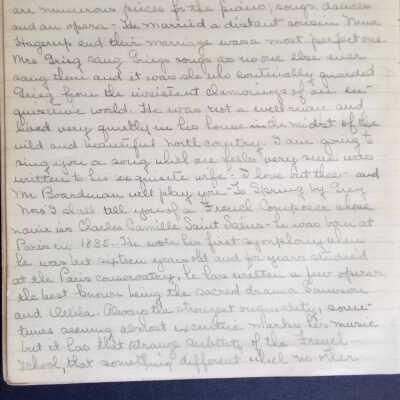 are numerous pieces for the piano, songs, dances
and an opera - He married a distant cousin Nina
Hagerup and their marriage was a most perfect one.
Mrs Grieg sang Griegs songs as no one else ever
sang them and it was she who continually guarded
Grieg from the insistent clamorings of an in-
quisitive world. He was not a well man and
lived very quietly in his house in the midst of the
wild and beautiful North country. I am going to
sing you a song which one feels very sure was
written to his exquisite wife - I love but thee - and
Mr Boardman will play you - To Spring by Grieg
Now I shall tell you of a French Composer whose
name is Charles Camille Saint Saëns - he was born at
Paris in 1835. He wrote his first symphony when
he was but sixteen years old and for years studied
at the Paris conservatory. he has written a few operas,
the best known being the sacred drama Samson
and Delila. Always the strongest originality, some-
times seeming almost eccentric marks his music
but it has that strange subtlety of the French
School, that something different which no other